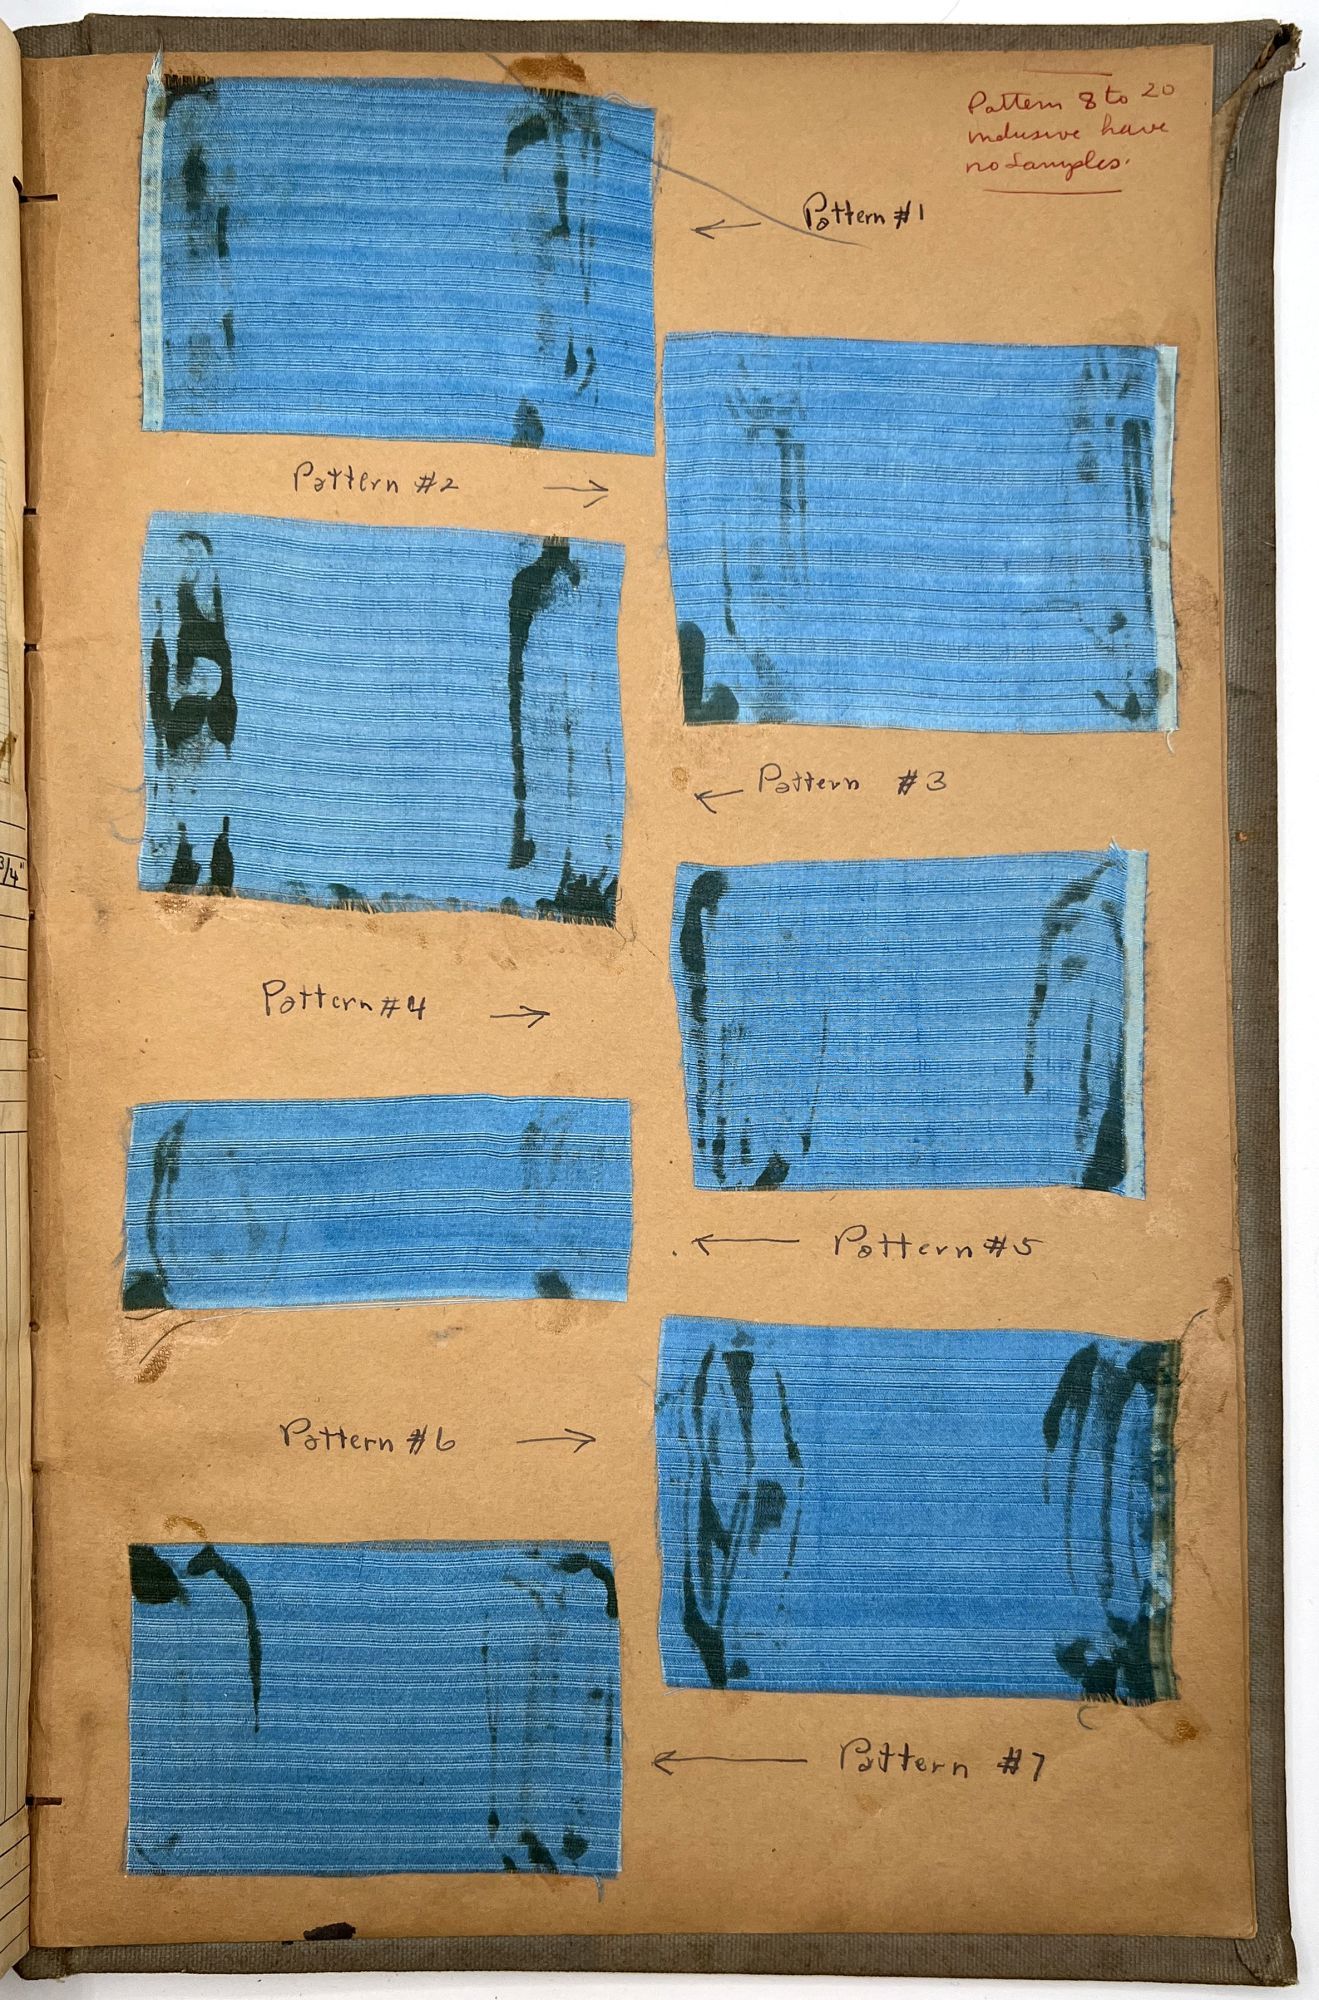 Pattern 8 to 20
inclusive have
no Samples.
← Pattern #1
Pattern #2 →
← Pattern #3
Pattern #4 →
← Pattern #5
Pattern #6 →
← Pattern #7
3/4"